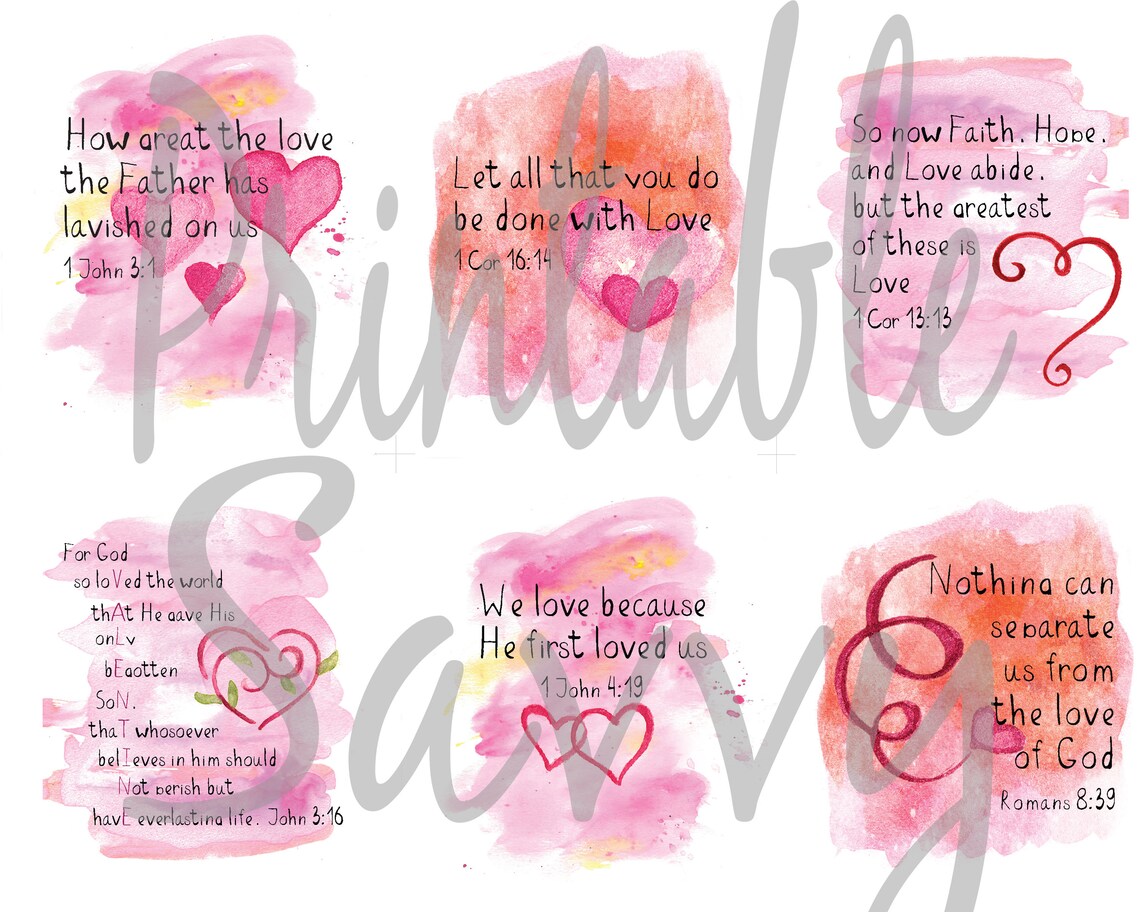 How great the love
the Father has
lavished on us
1 John 3:1
Let all that you do
be done with Love
1 Cor 16:14
So now Faith, Hope,
and Love abide,
but the greatest
of these is
Love
1 Cor 13:13
For God
so loVed the world
thAt He gave His
onLy
bEgotten
SoN,
thaT whosoever
belIeves in him should
Not perish but
havE everlasting life. John 3:16
We love because
He first loved us
1 John 4:19
Nothing can
separate
us from
the love
of God
Romans 8:39
Printable
Savvy